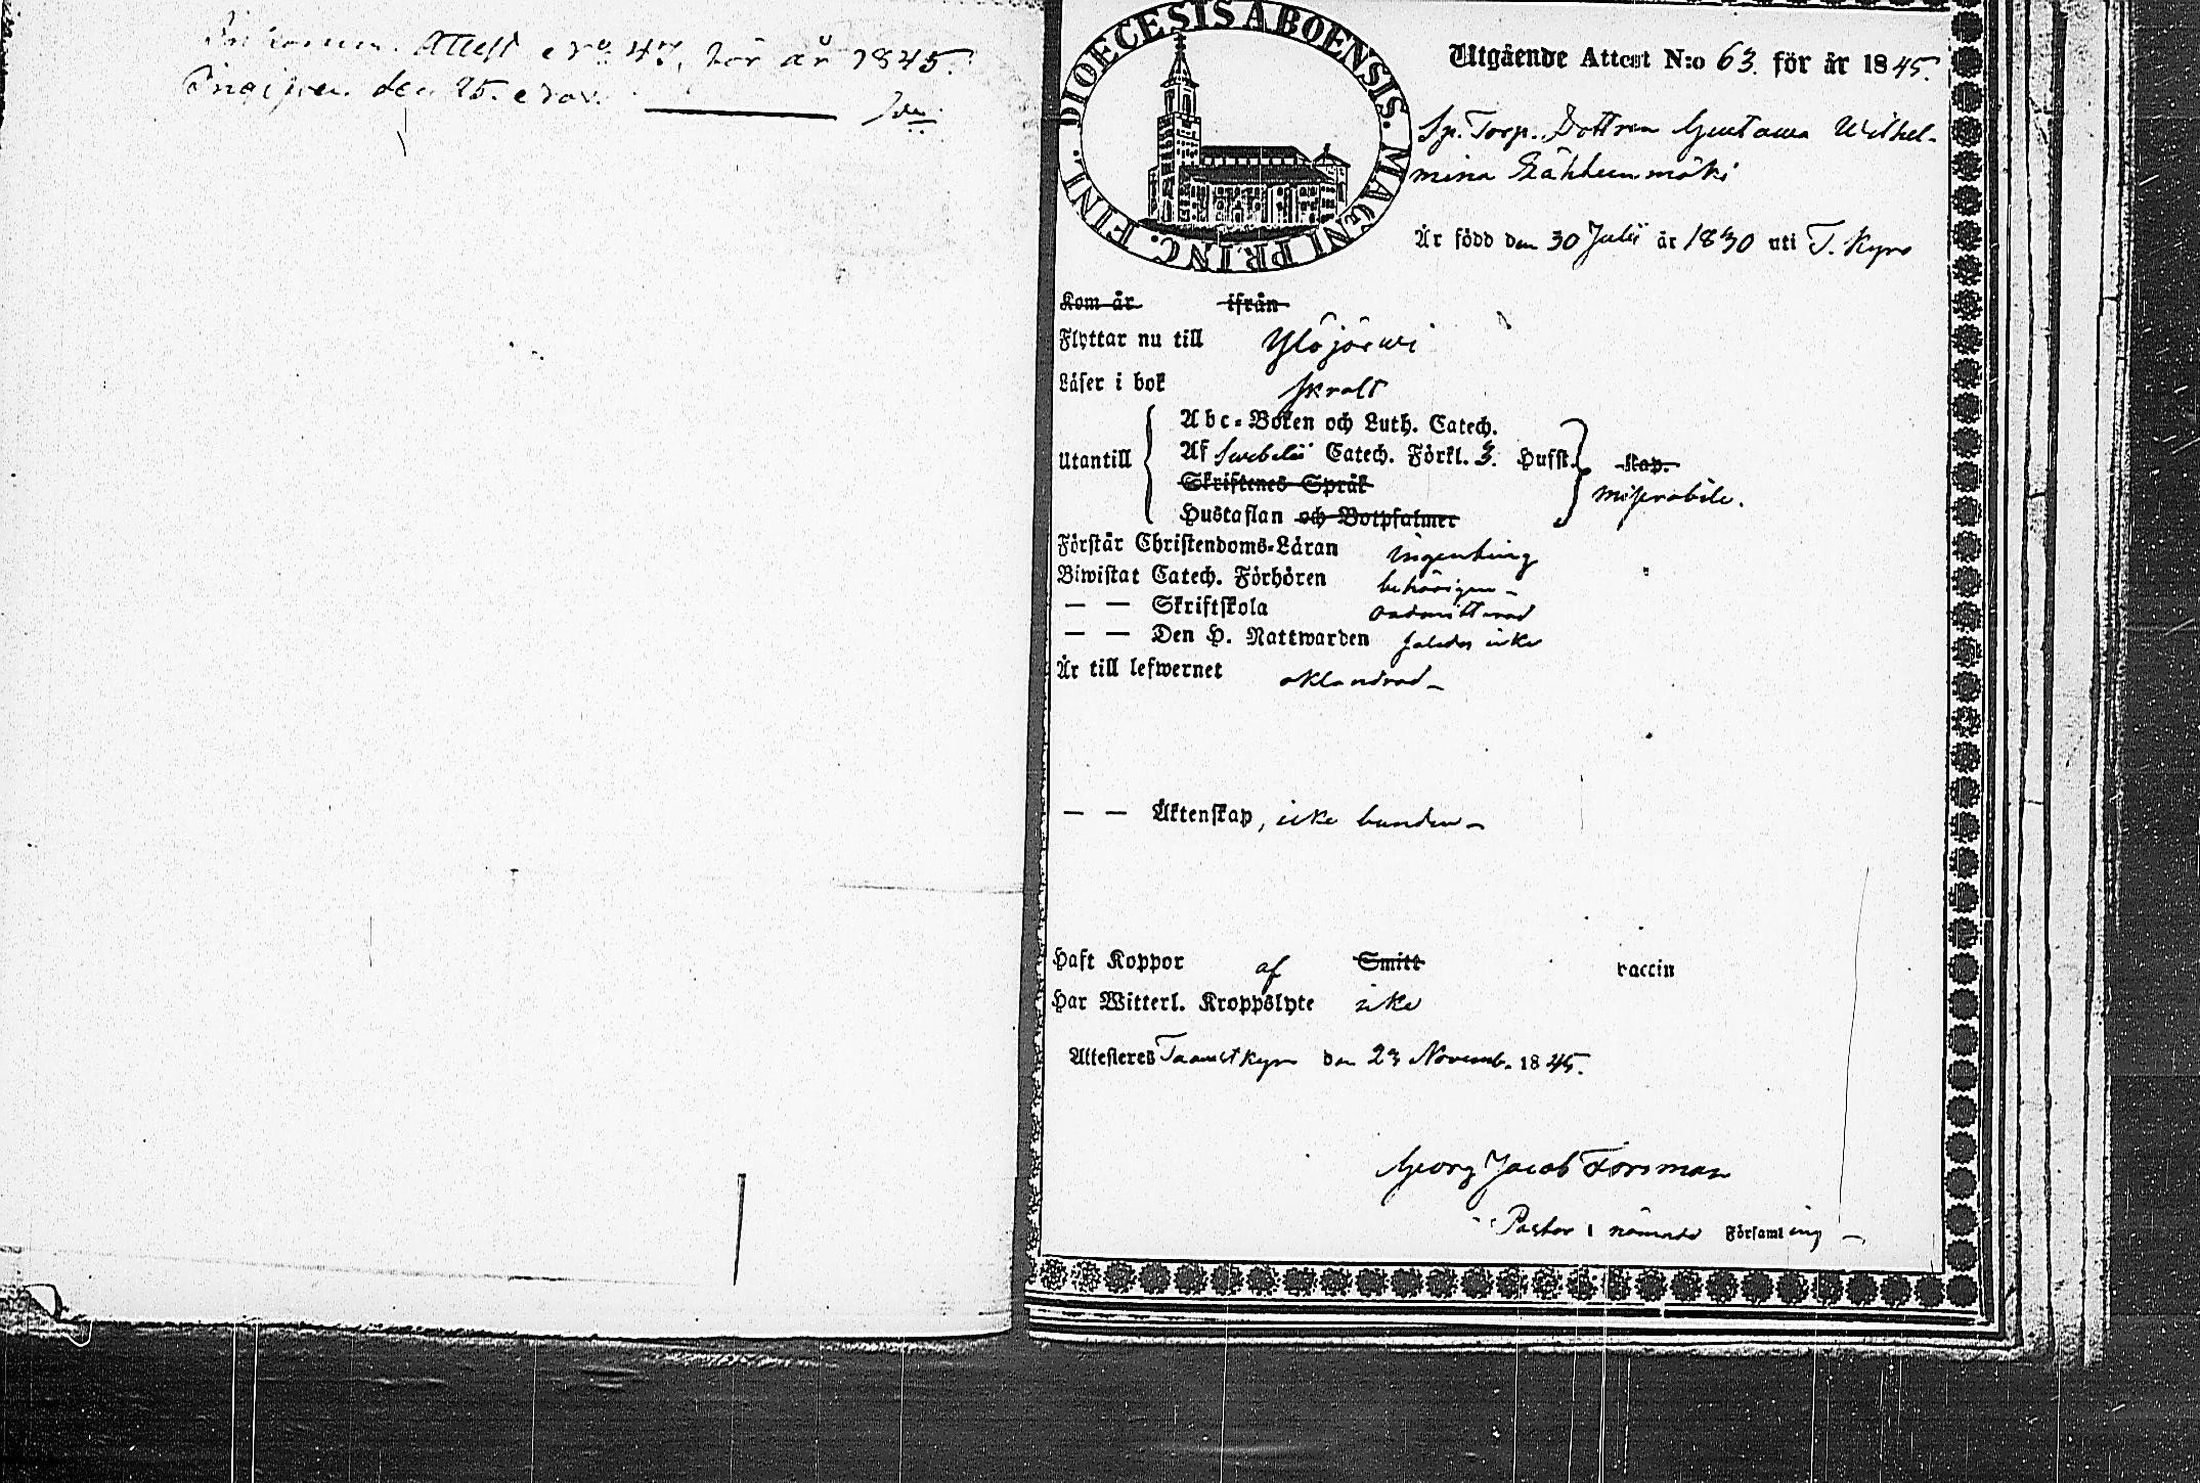 Attest No 47, för år 1845.
Ingifven den 25. Nov.
DIOECESIS ABOENSIS. MAGNI PRINC. FINL.
Utgående Attest N:o 63. för år 1845.
Sp. Torp. Dottren Gustawa Wilhel-
mina
Är född den 30 Julii år 1830 uti T. Kyro
Kom år ifrån
Flyttar nu till Ylöjärwi
Läser i bok skralt
Abc-Boken och Luth. Catech.
Utantill Af Swebelii Catech. Förkl. 3. Hufst. Kap.
Skriftenes Språk miserabile.
Hustaflan och Botpsalmer
Förstår Christendoms-Läran ingenting
Biwistat Catech. Förhören behörigen
— — Skriftskola oadmitterad
— — Den H. Nattwarden icke
Är till lefwernet oklandrad
— — Äktenskap, icke bunden
Haft Koppor af Smitt vaccin
Har Witterl. Kroppslyte icke
Attesteres Tawastkyro den 23 Novemb. 1845.
Georg Jacob Forsman
Pastor i nämnde Församling